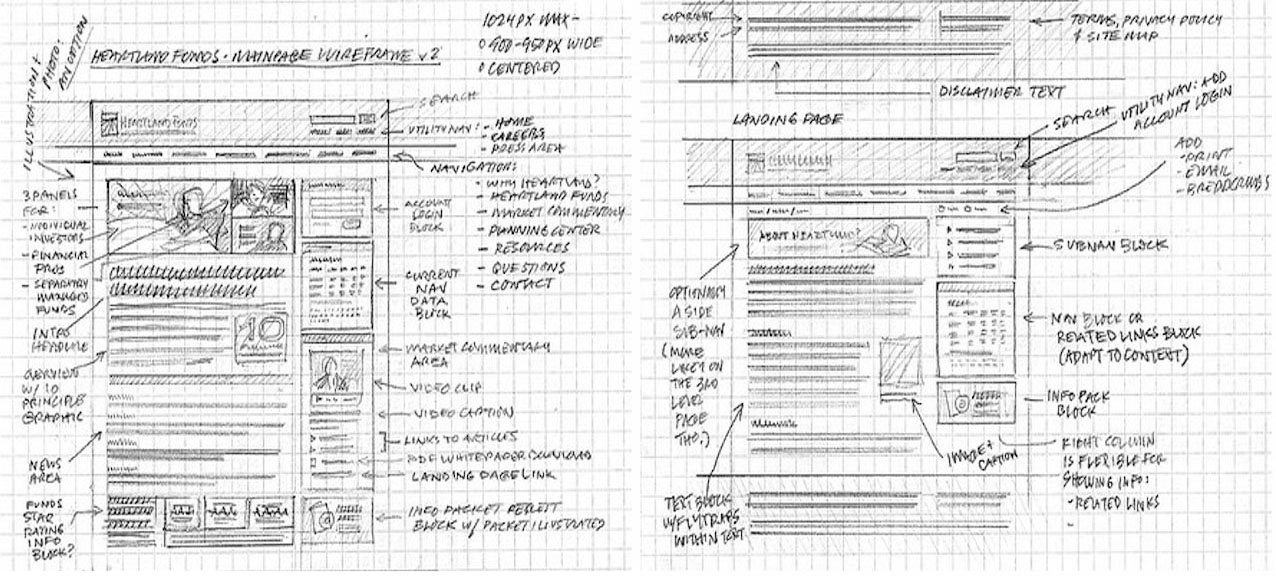 ILLUSTRATION +
PHOTO:
HEARTLAND FUNDS - MAINPAGE WIREFRAME v2
1024 PX MAX -
900-950 PX WIDE
CENTERED
SEARCH
HEARTLAND FUNDS
UTILITY NAV:
- HOME
- CAREERS
- PRESS AREA
NAVIGATION:
- WHY HEARTLAND?
- HEARTLAND FUNDS
- MARKET COMMENTARY
- PLANNING CENTER
- RESOURCES
- QUESTIONS
- CONTACT
3 PANELS
FOR:
- INDIVIDUAL
INVESTORS
- FINANCIAL
PROS
- SEPARATELY
MANAGED
FUNDS
INTRO
HEADLINE
OVERVIEW
W/ 10
PRINCIPLE
GRAPHIC
10
NEWS
AREA
FUNDS
STAR
RATING
INFO
BLOCK?
ACCOUNT
LOGIN
BLOCK
CURRENT
NAV
DATA
BLOCK
MARKET COMMENTARY
AREA
VIDEO CLIP
VIDEO CAPTION
LINKS TO ARTICLES
PDF WHITEPAPER DOWNLOAD
LANDING PAGE LINK
INFO PACKET
BLOCK W/ PACKET ILLUSTRATED
COPYRIGHT
ADDRESS
TERMS, PRIVACY POLICY
& SITE MAP
DISCLAIMER TEXT
LANDING PAGE
SEARCH
UTILITY NAV: ADD
ACCOUNT LOGIN
ADD
- PRINT
- EMAIL
- BREADCRUMBS
ABOUT HEARTLAND?
SUBNAV BLOCK
OPTIONALLY
A SIDE
SUB-NAV
(MORE
LIKELY ON
THE 3RD
LEVEL
PAGE
THO.)
NAV BLOCK OR
RELATED LINKS BLOCK
(ADAPT TO CONTEXT)
INFO PACK
BLOCK
IMAGE +
CAPTION
RIGHT COLUMN
IS FLEXIBLE FOR
SHOWING INFO:
- RELATED LINKS
TEXT BLOCK
W/ FLYTRAPS
WITHIN TEXT